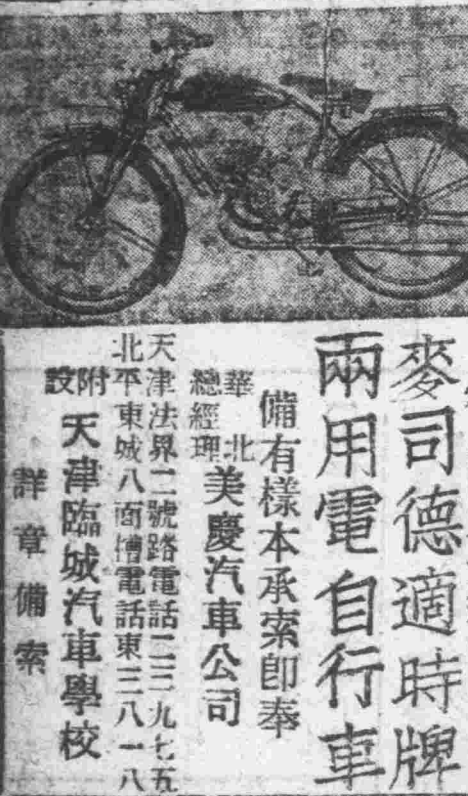 麥司德適時牌
兩用電自行車
備有樣本承索卽奉
華北
總經理
美慶汽車公司
天津法界二號路電話二三九七五
北平東城八面槽電話東三八一八
附設
天津臨城汽車學校
詳章備索